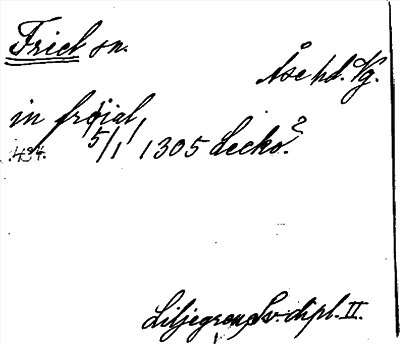 Friel sn.
Åse hd. Vg.
in friæl,
434. 5/1 1305 Lecko?
Liljegren, Sv. dipl. II.